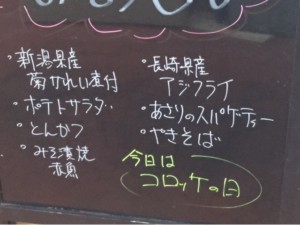 ・新潟県産
菊かれい煮付
・ポテトサラダ
・とんかつ
・みそ漬焼
赤魚
・長崎県産
アジフライ
・あさりのスパゲティー
・やきそば
今日は
コロッケの日